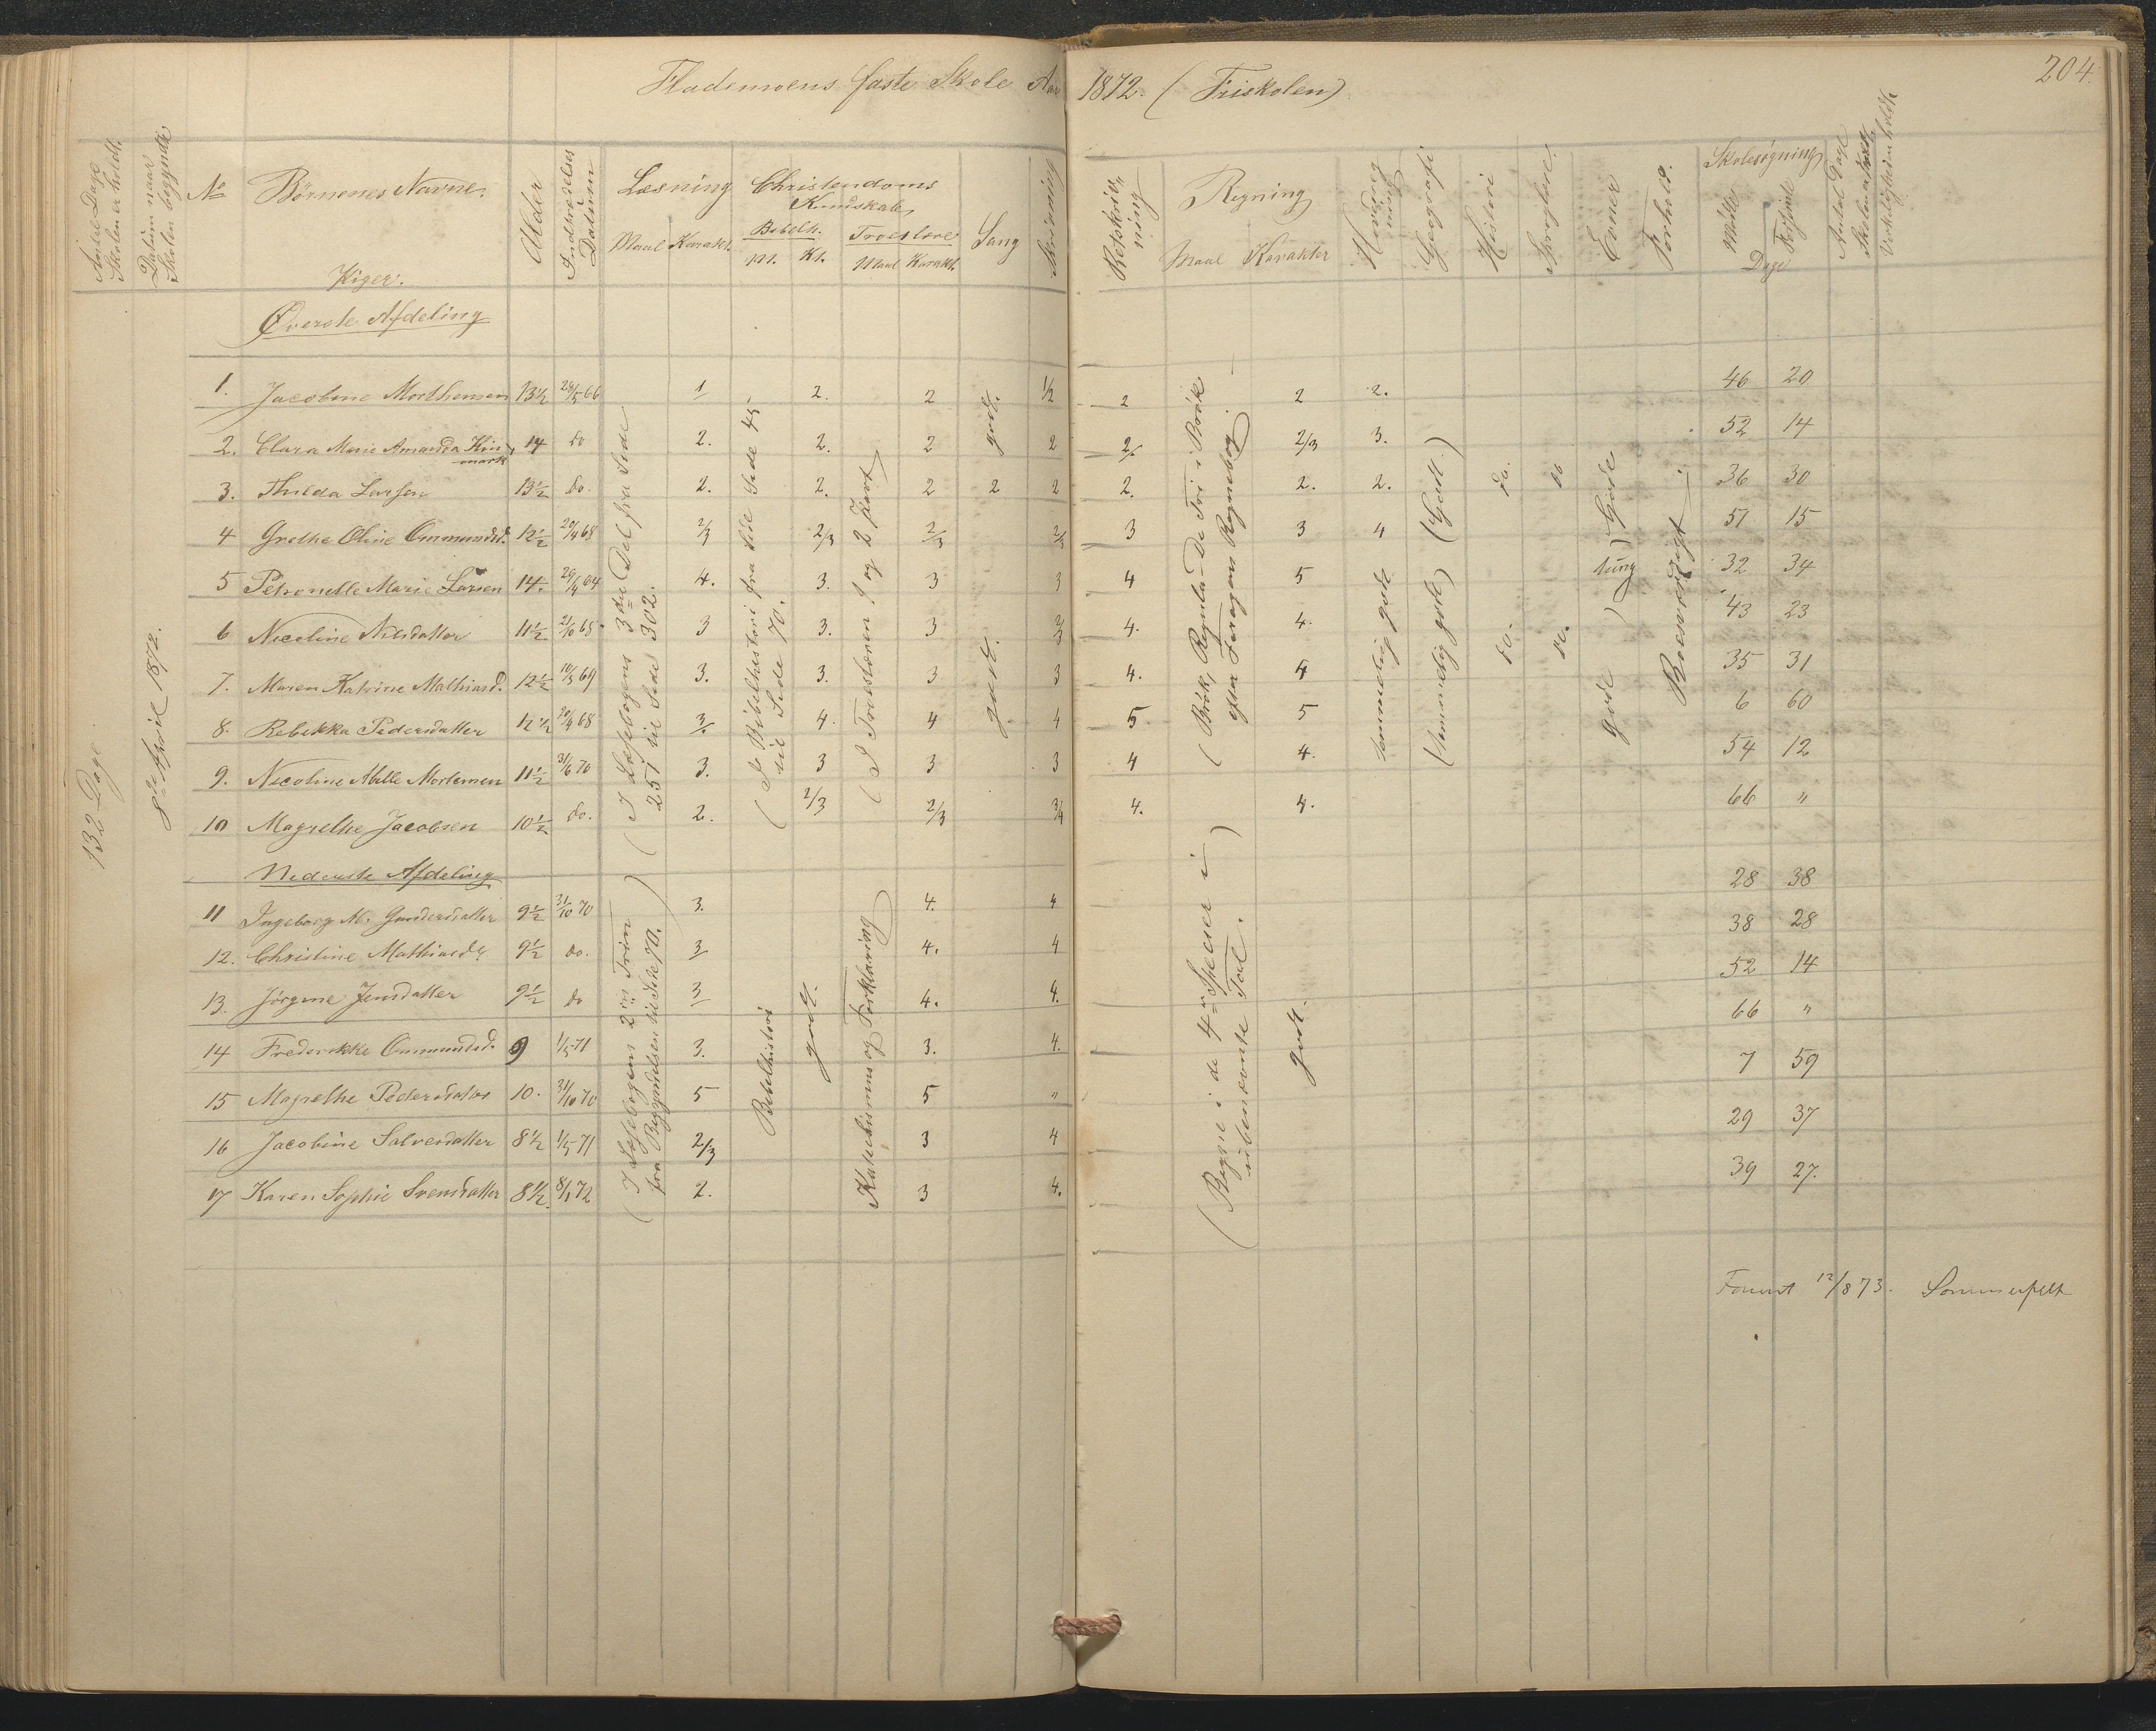 Flademoens faste Skole Aar 1872. (Friskolen)
204.
Antal Dage Skolen er holdt.
Datum naar Skolen begyndte
No
Börnenes Navne.
Alder
Indtrædelses Datum
Læsning
Maal Karakt.
Christendoms Kundskab,
Bibelh.
M. Kt.
Troeslære
Maal Karakt.
Sang
Skrivning
Retskrivning
Regning
Maal Karakter
Geografi
Historie
Evner
Forhold.
Skolesögning
Mödte Forsömte
Dage
Antal Dage
Piger.
Øverste Afdeling
132 Dage
8de April 1872.
1. Jacobine Morthensen 13½ 29/5 66 1 2. 2 1/2 2 2 2. 46 20
2. Clara Marie Amanda 14 do 2. 2. 2 2 2/ 2/3 3. 52 14
3. Thilda Larsen 13½ do. 2. 2. 2 2 2 2. 2. 2. 36 30
4 Grethe Oline Ommundsd. 12½ 20/4 68 2/3 2/3 2/3 2/3 3 3 4 51 15
5 Petronelle Marie Larsen 14. 29/4 64 4. 3. 3 3 4 5 32 34
6 Nicoline Nilsdatter 11½ 21/10 68 3 3. 3 4. 4. 43 23
7. Maren Katrine Mathiasd. 12½ 10/3 69 3. 3. 3 3 4. 4 35 31
8. Rebekka Pedersdatter 12½ 20/4 68 3/ 4. 4 4 5 5 6 60
9. Nicoline Mille Mortensen 11½ 31/6 70 3. 3 3 3 4 4. 54 12
10 Magrethe Jacobsen 10½ do. 2. 2/3 2/3 3/4 4. 4. 66 "
(I Læsebogens 3die Del fra Side 251 til Side 302.
(I Bibelhistori fra Side Side 45- til Side 70.
(I Troeslæren 1 og 2 Part)
godt.
godt.
(Brök, Regula-De Tri i Brök efter Foragers Regnebog)
temmelig godt
(temmelig godt) (Godt.)
do. do.
do. do.
gode) tung) Gode
Nederste Afdeling
11 Ingeborg M. Gundersdatter 9½ 31/10 70 3. 4. 4 28 38
12. Christine Mathiasd. 9½ do. 3/ 4. 4 38 28
13. Jörgine Jensdatter 9½ do 3/ 4. 4. 52 14
14 Frederikke Ommundsd. 9 1/5 71 3. 3. 4. 66 "
15 Magrethe Pedersdatter 10. 31/10 70 5 5 " 7 59
16 Jacobine Salvesdatter 8½ 1/5 71 2/3 3 4 29 37
17 Karen Sophie Svendsdatter 8½. 8/1 72 2. 3 4. 39 27.
(I Læsebogens 2det Trin fra Begyndelsen til Side 70.)
Bibelhistori
godt.
Katekismus og Forklaring
(Regne i de 4re Specier i ubenævnte Tal.)
godt.
12/8 73. Sommerfelt